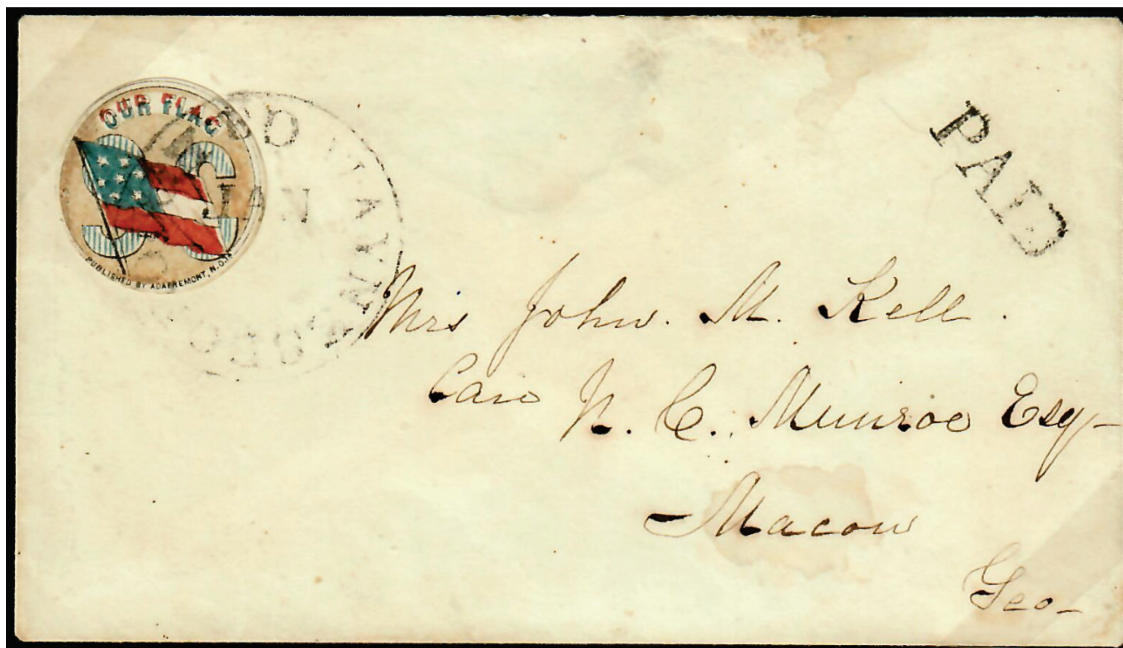 OUR FLAG
PUBLISHED BY
JAN
PAID
Mrs John. M. Kell.
Care
N. C. Munroe Esq-
Macon
Geo-